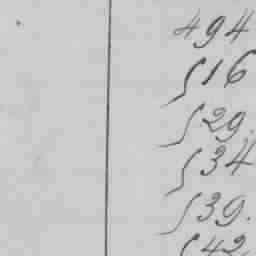 494
516
529.
534
539.
542.